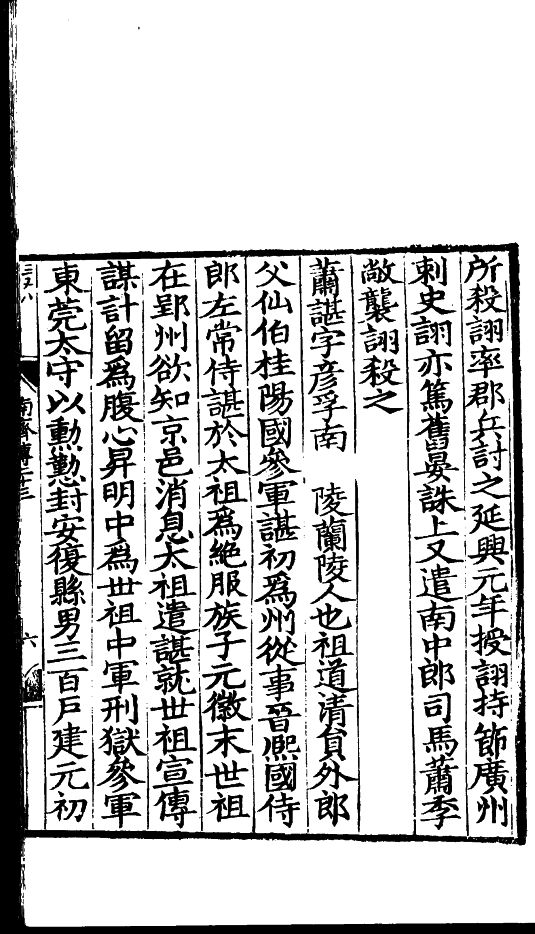 所殺詡率郡兵討之延興元年授詡持節廣州
刺史詡亦篤舊㬰誅上又遣南中郎司馬蕭季
敞襲詡殺之
蕭諶字彥孚南 陵蘭陵人也祖道清貟外郎
父仙伯桂陽國參軍諶初爲州從事晉熙國侍
郎左常侍諶於太祖爲絶服族子元徽末世祖
在郢州欲知京邑消息太祖遣諶就世祖宣傳
謀計留爲腹心昇明中爲世祖中軍刑獄參軍
東莞太守以勳懃封安復縣男三百戶建元初
南齊傳二十三
六